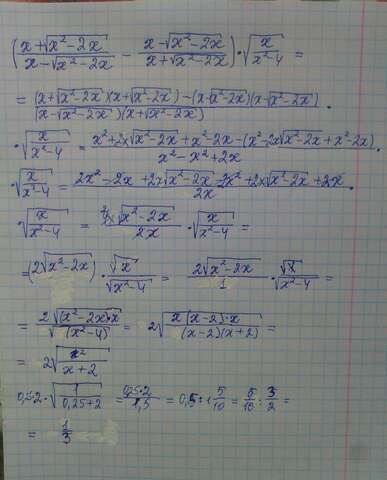 ((x+√(x²-2x))/(x-√(x²-2x)) - (x-√(x²-2x))/(x+√(x²-2x))) · √(x/(x²-4)) =
= ((x+√(x²-2x))(x+√(x²-2x)) - (x-√(x²-2x))(x-√(x²-2x)))/((x-√(x²-2x))(x+√(x²-2x))) ·
· √(x/(x²-4)) = (x²+2x√(x²-2x)+x²-2x-(x²-2x√(x²-2x)+x²-2x))/(x²-x²+2x) ·
· √(x/(x²-4)) = (2x²-2x+2x√(x²-2x)-2x²+2x√(x²-2x)+2x)/2x ·
· √(x/(x²-4)) = (4x√(x²-2x))/2x · √(x/(x²-4)) =
=(2√(x²-2x)) · √x/√(x²-4) = (2√(x²-2x))/1 · √x/√(x²-4) =
= (2√((x²-2x)·x))/√(x²-4) = 2√((x(x-2)·x)/((x-2)(x+2))) =
= 2√(x²/(x+2))
0,5·2·√(1/(0,25+2)) = (0,5·2)/1,5 = 0,5:1 5/10 = 5/10 : 3/2 =
= 1/3